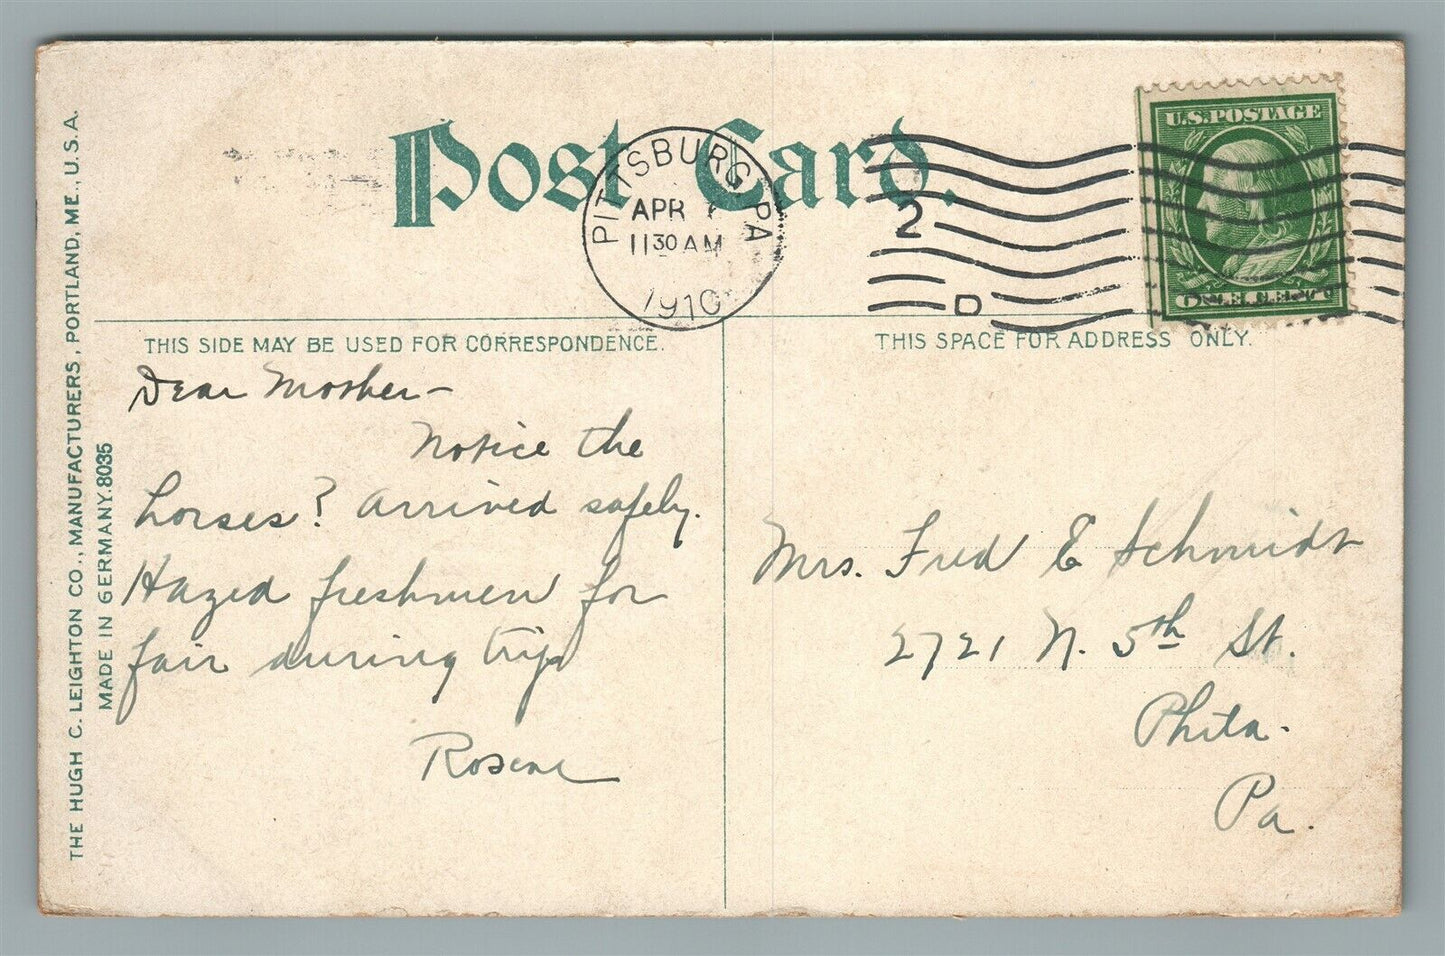 Post Card.
PITTSBURG, PA
APR
11 30 AM
1910
2
D
U.S. POSTAGE
THIS SIDE MAY BE USED FOR CORRESPONDENCE.
THIS SPACE FOR ADDRESS ONLY.
THE HUGH C. LEIGHTON CO., MANUFACTURERS, PORTLAND, ME., U.S.A.
MADE IN GERMANY. 8035
Dear Mother –
Notice the
horses? Arrived safely.
Hazed freshmen for
fair during trip
Mrs. Fred E Schmidt
2721 N. 5th St.
Phila.
Pa.